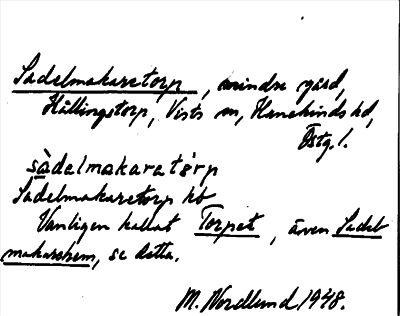 Sadelmakaretorp, mindre gård,
Hållingstorp, Vists sn, Hanekinds hd,
Östg. l.
sàdelmakaratórp
Sadelmakaretorp hb
Vanligen kallat Torpet, även Sadel
makarehem, se detta.
M. Nordlund 1948.